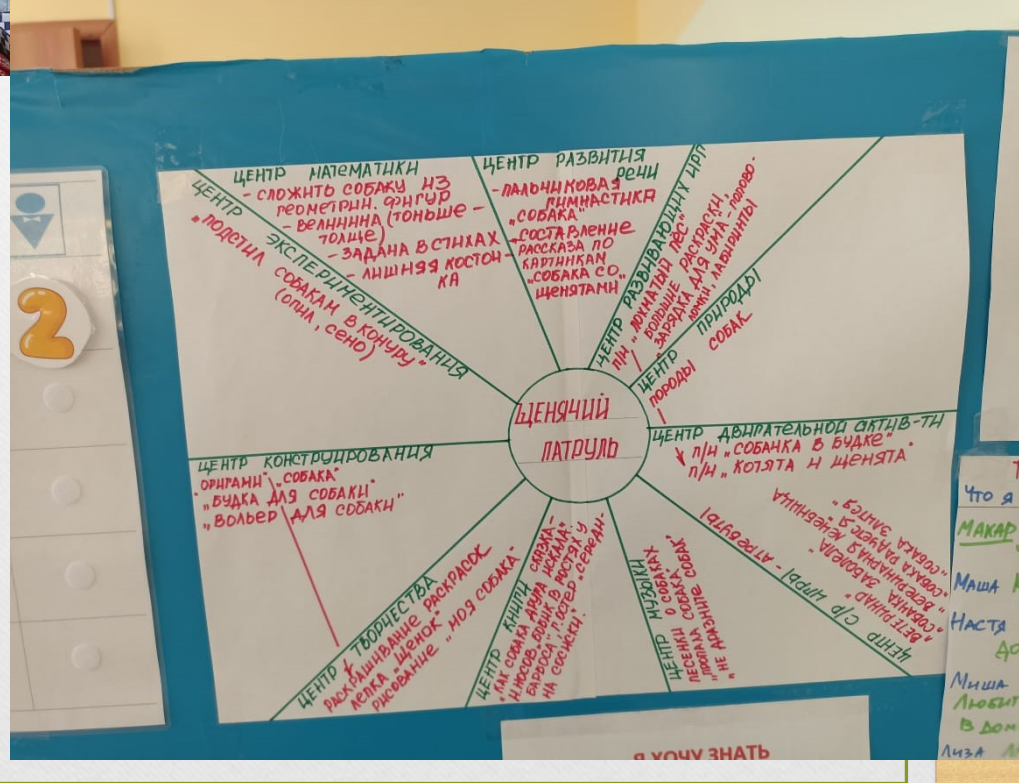 2
ЩЕНЯЧИЙ
ПАТРУЛЬ
ЦЕНТР МАТЕМАТИКИ
- СЛОЖИТЬ СОБАКУ ИЗ
ГЕОМЕТРИЧ. ФИГУР
- ВЕЛИЧИНА (ТОНЬШЕ -
ТОЛЩЕ)
- ЗАДАЧА В СТИХАХ
- ЛИШНЯЯ КОСТОЧ-
КА
ЦЕНТР РАЗВИТИЯ
РЕЧИ
- ПАЛЬЧИКОВАЯ
ГИМНАСТИКА
"СОБАКА"
- СОСТАВЛЕНИЕ
РАССКАЗА ПО
КАРТИНКАМ
"СОБАКА СО
ЩЕНЯТАМИ"
ЦЕНТР РАЗВИВАЮЩИХ ИГР
П/И "ЛОХМАТЫЙ ПЁС"
БОЛЬШИЕ РАСКРАСКИ,
"ЗАРЯДКА ДЛЯ УМА - ГОЛОВО-
ЛОМКИ, ЛАБИРИНТЫ
ЦЕНТР ПРИРОДЫ
ПОРОДЫ СОБАК
ЦЕНТР ДВИГАТЕЛЬНОЙ АКТИВ-ТИ
П/И "СОБАЧКА В БУДКЕ"
П/И "КОТЯТА И ЩЕНЯТА"
ЦЕНТР С/Р ИГРЫ - АТРЕБУТЫ
"ВЕТЕРИНАР"
"СОБАЧКА ЗАБОЛЕЛА"
"ВЕТЕРИНАРНАЯ ЛЕЧЕБНИЦА
"СОБАКА РАДУЕТСЯ"
"СОБАКА ЗЛИТСЯ"
ЦЕНТР МУЗЫКИ
ПЕСЕНКИ О СОБАКАХ
"ПРОПАЛА СОБАКА",
"НЕ ДРАЗНИТЕ СОБАК"
ЦЕНТР КНИГИ
"КАК СОБАКА ДРУГА ИСКАЛА"
Н.НОСОВ "БОБИК В ГОСТЯХ У
БАРБОСА",
НА СОСИСКИ.
ЦЕНТР ТВОРЧЕСТВА
РАСКРАШИВАНИЕ РАСКРАСОК
ЛЕПКА "ЩЕНОК"
РИСОВАНИЕ "МОЯ СОБАКА"
ЦЕНТР КОНСТРУИРОВАНИЯ
"ОРИГАМИ" "СОБАКА"
"БУДКА ДЛЯ СОБАКИ"
"ВОЛЬЕР ДЛЯ СОБАКИ"
ЦЕНТР ЭКСПЕРИМЕНТИРОВАНИЯ
"ПОДСТИЛ СОБАКАМ В КОНУРУ"
(ОПИЛ, СЕНО)
ЧТО Я
МАКАР
МАША
НАСТЯ
МИША
ЛЮБИТ
В ДОМ
ЛИЗА
Я ХОЧУ ЗНАТЬ